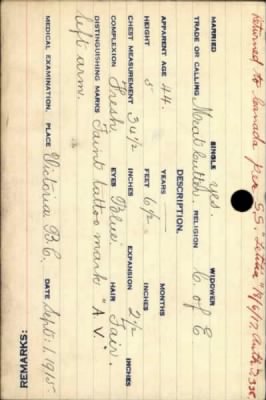 returned to Canada per S.S. "Letitia" 18/6/17. Auth. 2338.
MARRIED SINGLE yes. WIDOWER
TRADE OR CALLING Meat butcher. RELIGION C. of E
DESCRIPTION.
APPARENT AGE 44. YEARS MONTHS
HEIGHT 5 FEET 6 1/2 INCHES
CHEST MEASUREMENT 34 1/2 INCHES EXPANSION 2 1/2 INCHES
COMPLEXION Fresh EYES Blue. HAIR Fair.
DISTINGUISHING MARKS Faint tattoo mark "A.V.
left arm.
MEDICAL EXAMINATION. PLACE Victoria B.C. DATE Sept: 1. 1915.
REMARKS: